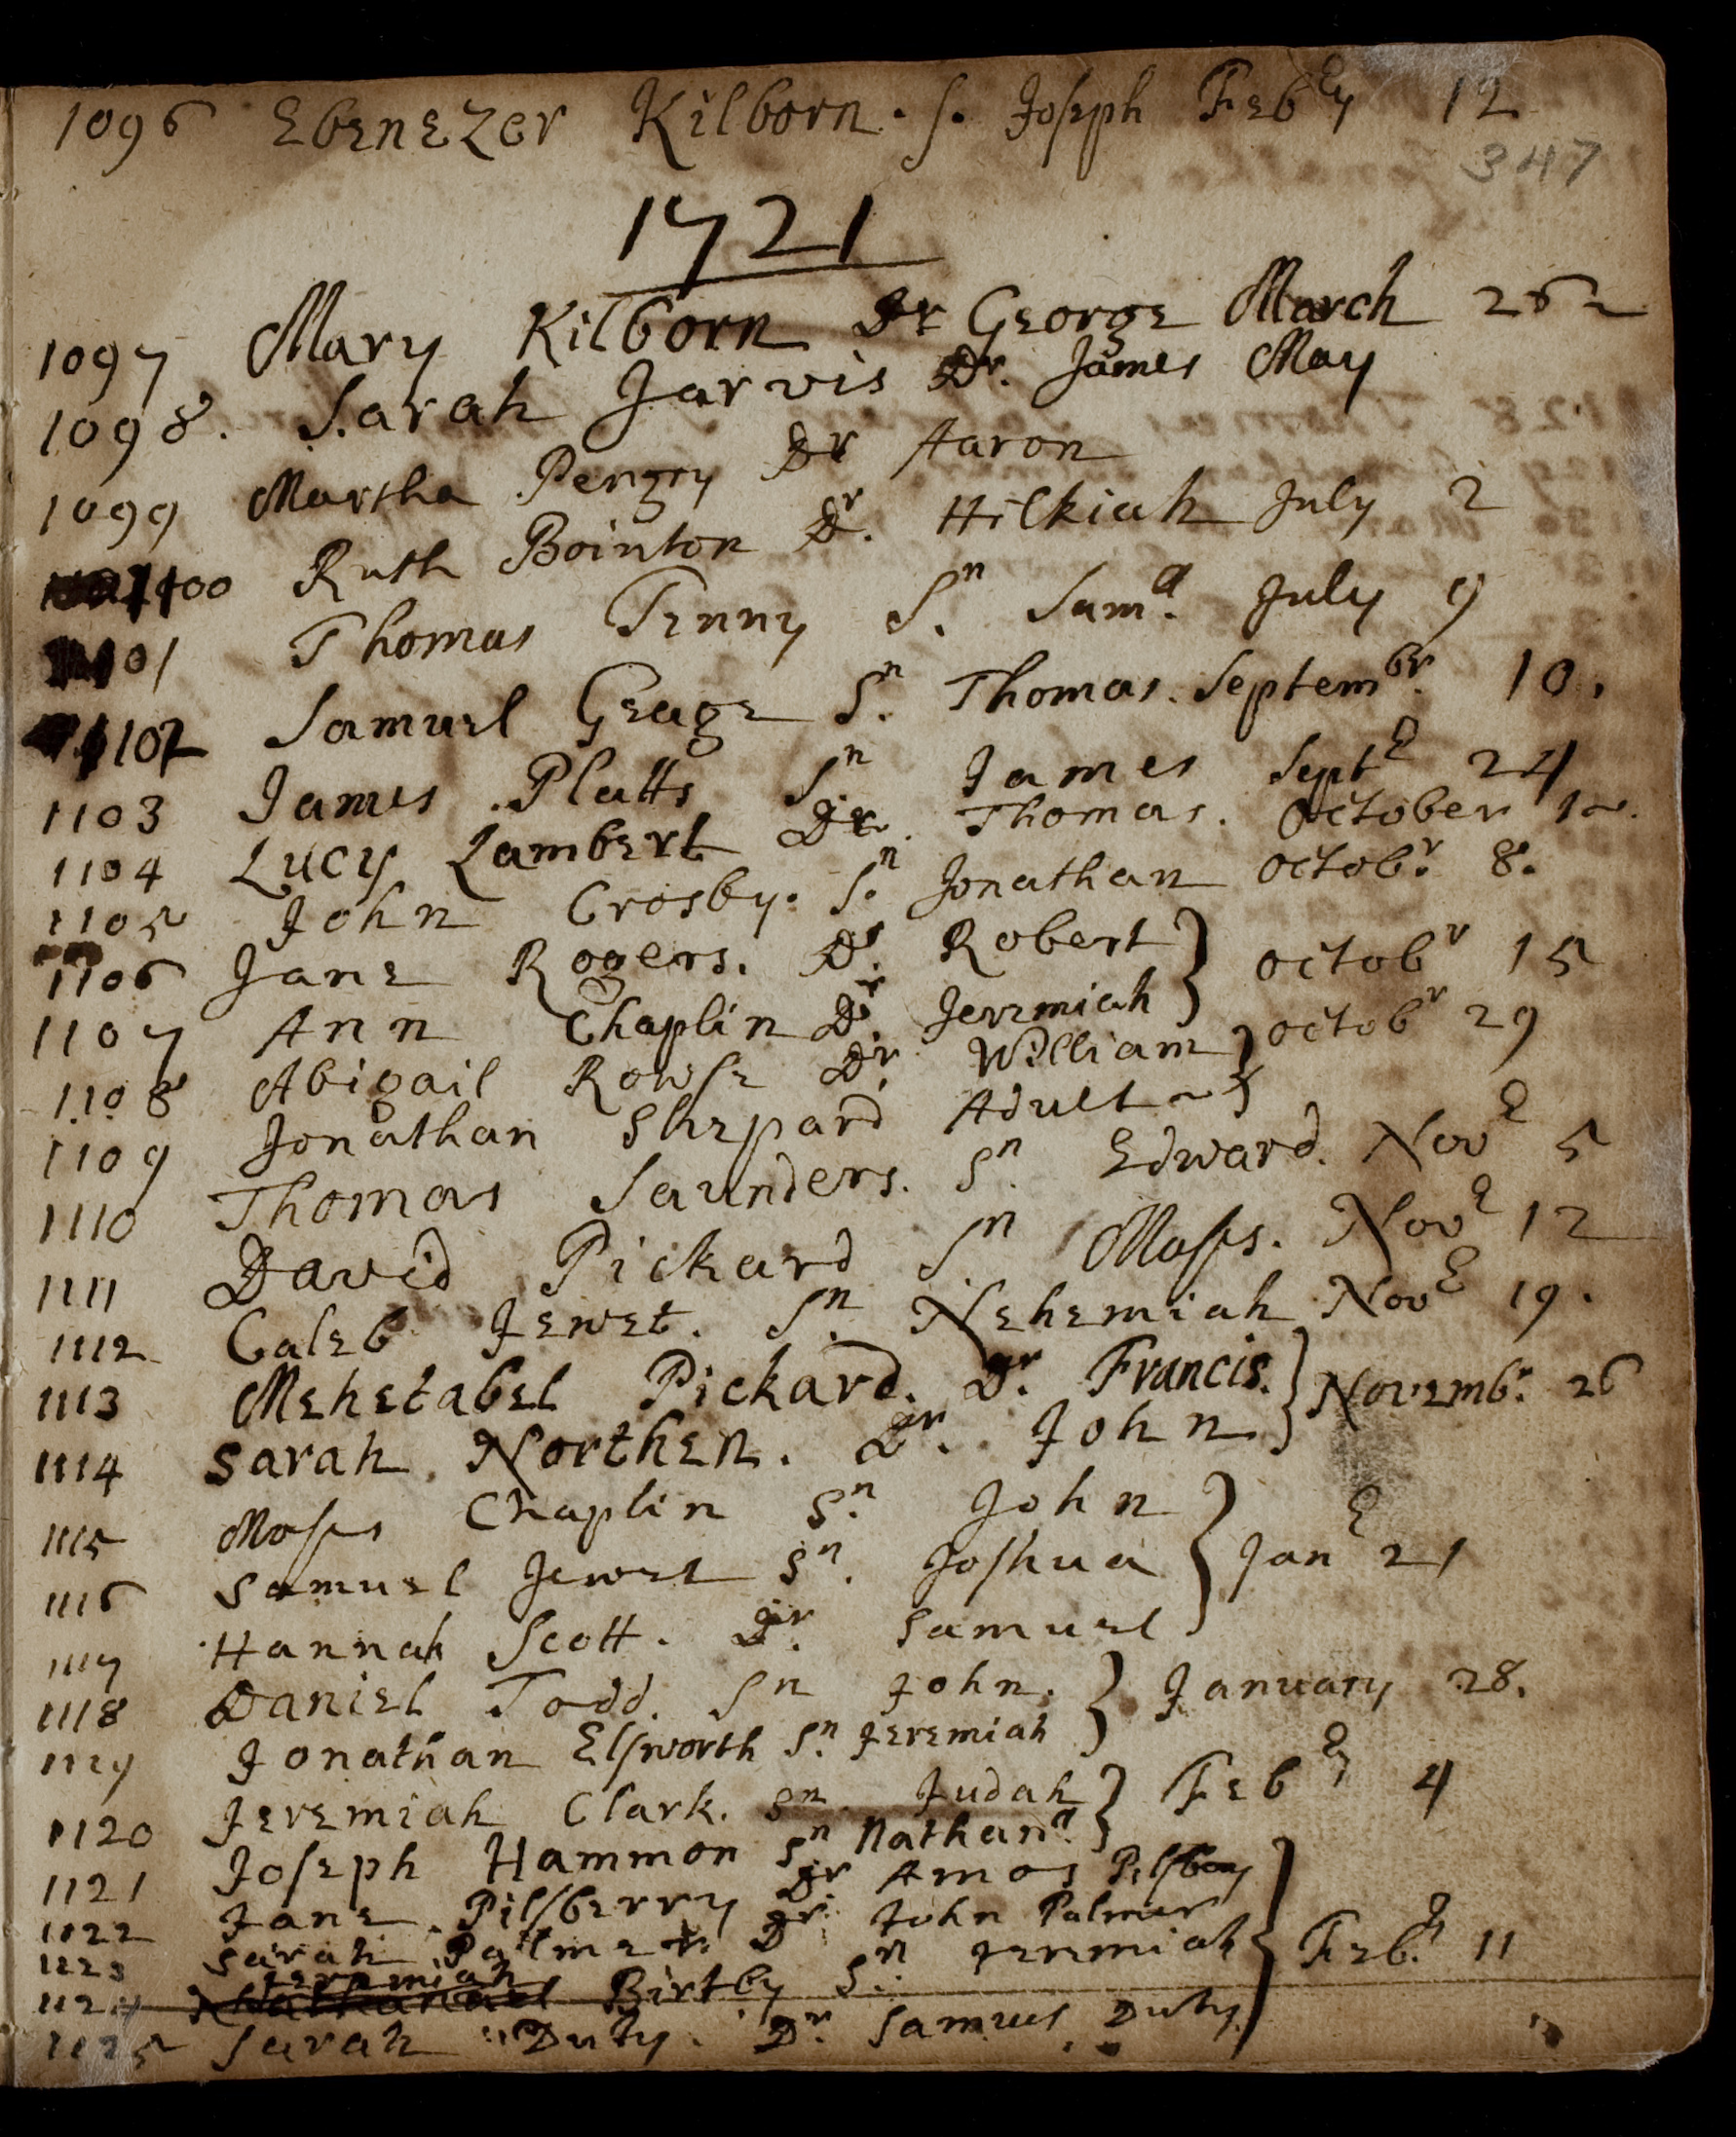 1096 Ebenezer Kilborn. s. Joseph Feb^ry 12
347
1721
1097 Mary Kilborn Dr George March 26
1098. Sarah Jarvis Dr. James May
1099 Martha Pengry Dr Aaron
1100 Ruth Bointon Dr. Hilkiah July 2
1101 Thomas Tenny Sn. Saml. July 9
1102 Samuel Geage Sn. Thomas. Septembr. 10.
1103 James Platts Sn James Septr 24
1104 Lucy Lambert Dr. Thomas. October 1
1105 John Crosby. Sn. Jonathan Octobr. 8.
1106 Jane Rogers. Dr. Robert } Octobr 15
1107 Ann Chaplin Dr. Jeremiah
1108 Abigail Rowse Dr. William } Octobr 29
1109 Jonathan Shepard Adult
1110 Thomas Saunders. Sn. Edward. Novr 5
1111 David Pickard Sn Moses. Novr 12
1112 Caleb Jewet. Sn. Nehemiah Novr 19.
1113 Mehetabel Pickard. Dr. Francis. } Novembr. 26
1114 Sarah Northen. Dr. John
1115 Moses Chaplin Sn. John
1116 Samuel Jewet Sn. Joshua } Janr 21
1117 Hannah Scott. Dr. Samuel
1118 Daniel Todd. Sn John. } January 28.
1119 Jonathan Elsworth Sn. Jeremiah
1120 Jeremiah Clark. Sn. Judah } Febry 4
1121 Joseph Hammon Sn Nathanl.
1122 Jane. Pilsberry Dr. Amos Pilsbery
1123 Sarah Palmer Dr. John Palmer
1124 Jeremiah Birtby Sn. Jeremiah } Feb.ry 11
1125 Sarah Duty. Dr. Samuel Duty.